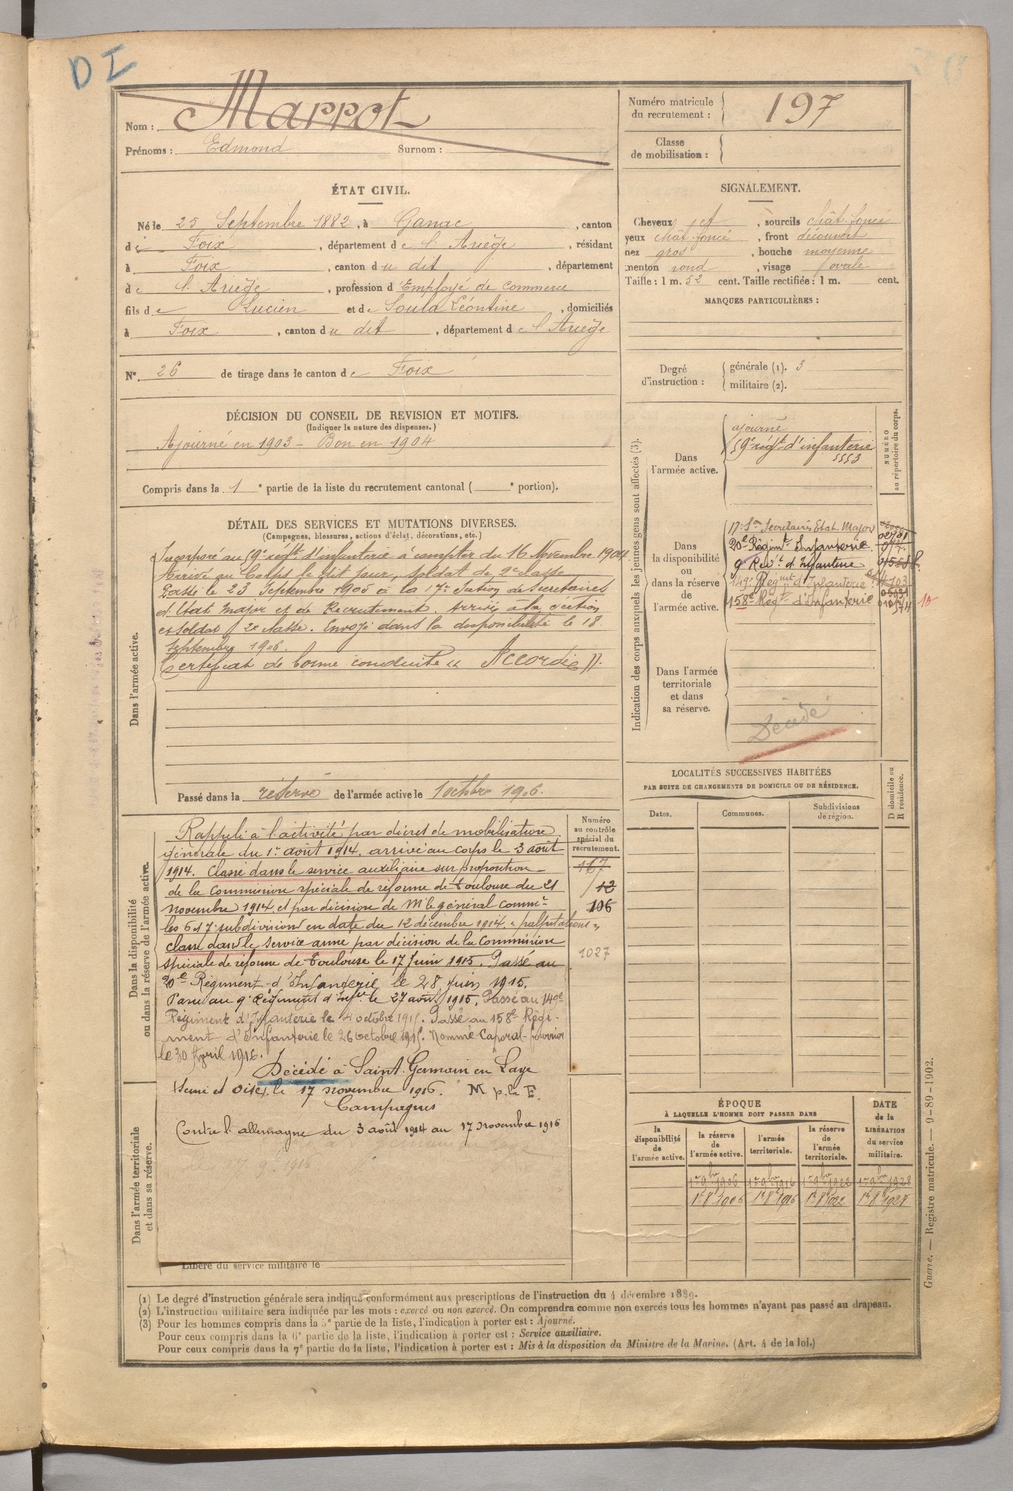 DI
Nom : Marrot
Prénoms : Edmond Surnom :
Numéro matricule du recrutement : 197
Classe de mobilisation :
ÉTAT CIVIL.
Né le 25 Septembre 1882, à Ganac, canton
de Foix, département de l'Ariège, résidant
à Foix, canton du dit, département
de l'Ariège, profession d'Employé de commerce
fils de Lucien et de Soula Léontine, domiciliés
à Foix, canton du dit, département de l'Ariège
N° 26 de tirage dans le canton de Foix
SIGNALEMENT.
Cheveux jet, sourcils chât. foncé
yeux chât. foncé, front découvert
nez gros, bouche moyenne
menton rond, visage ovale
Taille : 1 m. 52 cent. Taille rectifiée : 1 m. cent.
MARQUES PARTICULIÈRES :
Degré d'instruction : générale (1). 3
militaire (2).
DÉCISION DU CONSEIL DE REVISION ET MOTIFS.
(Indiquer la nature des dispenses.)
Ajourné en 1903 - Bon en 1904
Compris dans la 1e partie de la liste du recrutement cantonal ( e portion).
DÉTAIL DES SERVICES ET MUTATIONS DIVERSES.
(Campagnes, blessures, actions d'éclat, décorations, etc.)
Dans l'armée active.
Incorporé au 59e régt d'infanterie à compter du 16 Novembre 1904
Arrivé au Corps le dit jour, soldat de 2e classe
Passé le 23 Septembre 1905 à la 17e Section de Secrétaires
d'Etat Major et de Recrutement. Arrivé à la section
et soldat 2e classe. Envoyé dans la disponibilité le 18
Septembre 1906.
Certificat de bonne conduite « Accordé ».
Passé dans la réserve de l'armée active le 1 octobre 1906.
Indication des corps auxquels les jeunes gens sont affectés (3).
NUMÉRO au répertoire du corps.
Dans l'armée active.
ajourné
59e régt d'infanterie
5553
Dans la disponibilité ou dans la réserve de l'armée active.
17e Son Secrétaires Etat Major
20e Régimt Infanterie
9e Régt d'Infanterie
149e Régimt d'Infanterie
158e Régt d'Infanterie
Dans l'armée territoriale et dans sa réserve.
Décédé
LOCALITÉS SUCCESSIVES HABITÉES
PAR SUITE DE CHANGEMENTS DE DOMICILE OU DE RÉSIDENCE.
D domicile ou R résidence.
Dates. Communes. Subdivisions de région.
Dans la disponibilité ou dans la réserve de l'armée active.
Numéro au contrôle spécial du recrutement.
167
12
106
1027
Rappelé à l'activité par décret de mobilisation
générale du 1er août 1914. arrivé au corps le 3 août
1914. Classé dans le service auxiliaire sur proposition
de la Commission spéciale de réforme de Toulouse du 21
novembre 1914 et par décision de Mr le général commt
les 6 et 7 subdivisions en date du 12 décembre 1914. « palpitations »
classé dans le service armé par décision de la Commission
spéciale de réforme de Toulouse le 17 juin 1915. Passé au
20e Régiment d'Infanterie le 28 juin 1915.
Passé au 9e Régiment d'Infie le 27 août 1915. Passé au 149e
Régiment d'Infanterie le 4 octobre 1915. Passé au 158e Régi-
ment d'Infanterie le 26 octobre 1915. Nommé Caporal-fourrier
le 30 April 1916.
Décédé à Saint Germain en Laye
(Seine et Oise) le 17 novembre 1916. M p. la F.
Campagnes
Contre l'allemagne du 3 août 1914 au 17 novembre 1916
Dans l'armée territoriale et dans sa réserve.
Libéré du service militaire le
ÉPOQUE
À LAQUELLE L'HOMME DOIT PASSER DANS
DATE de la LIBÉRATION du service militaire.
la disponibilité de l'armée active. la réserve de l'armée active. l'armée territoriale. la réserve de l'armée territoriale.
1er 9bre 1906 1er 9bre 1916 1er 9bre 1922 1er 9bre 1928
1er 8 1906 1er 8 1916 1er 8 1922 1er 8 1928
Guerre. — Registre matricule. — 9-89-1902.
(1) Le degré d'instruction générale sera indiqué conformément aux prescriptions de l'instruction du 4 décembre 1889.
(2) L'instruction militaire sera indiquée par les mots : exercé ou non exercé. On comprendra comme non exercés tous les hommes n'ayant pas passé au drapeau.
(3) Pour les hommes compris dans la 5e partie de la liste, l'indication à porter est : Ajourné.
Pour ceux compris dans la 6e partie de la liste, l'indication à porter est : Service auxiliaire.
Pour ceux compris dans la 7e partie de la liste, l'indication à porter est : Mis à la disposition du Ministre de la Marine. (Art. 4 de la loi.)